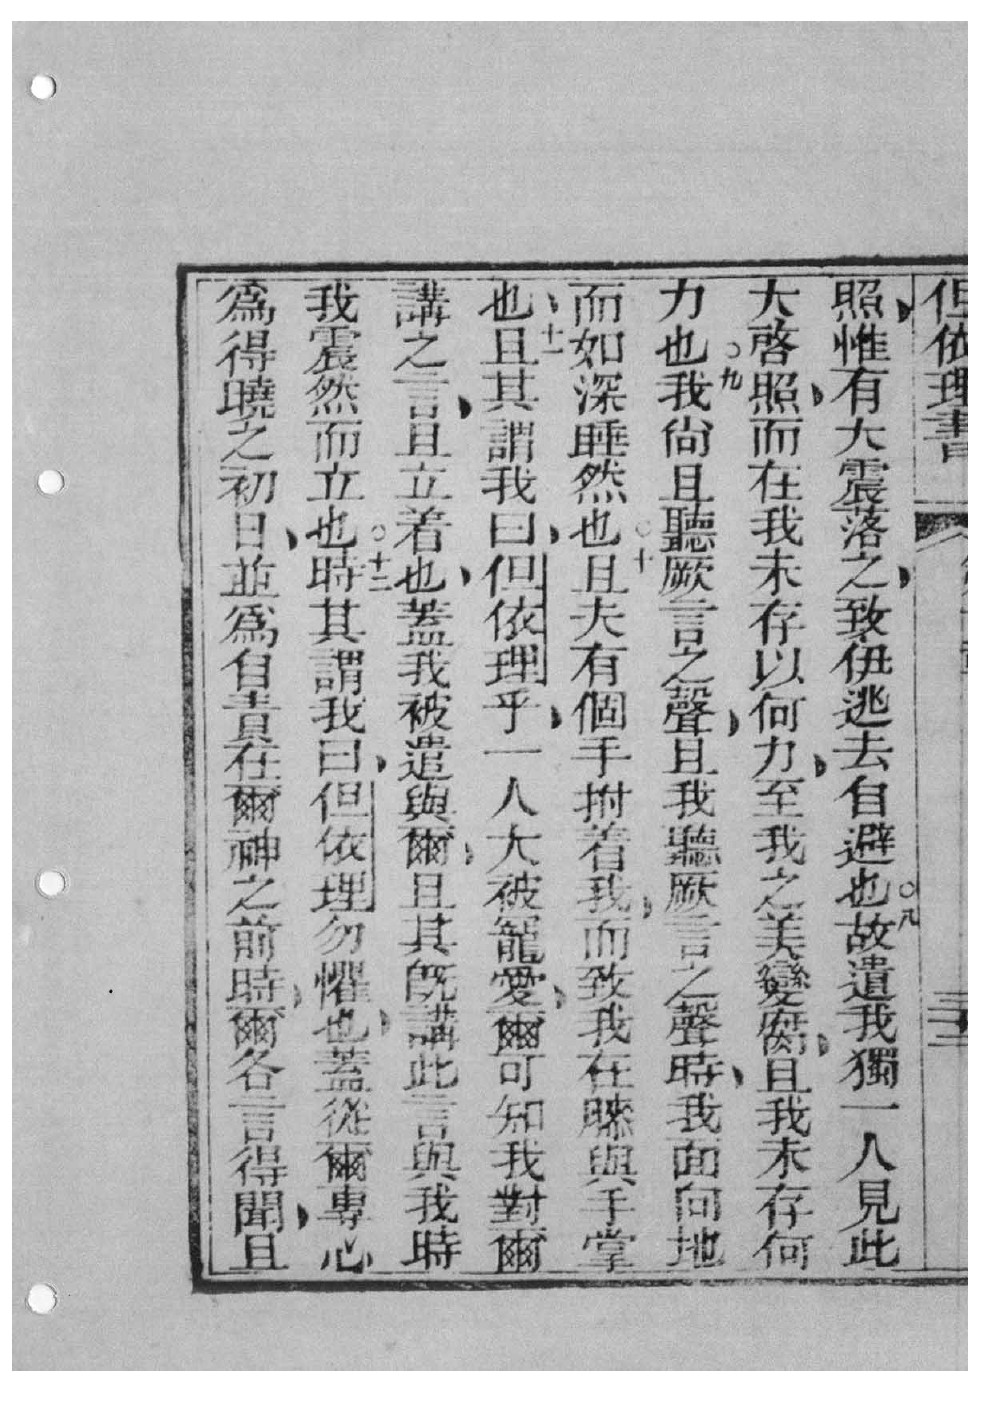 但依理書
照惟有大震落之致伊逃去自避也○八故遺我獨一人見此
大啓照而在我未存以何力至我之美變腐且我未存何
力也○九我尙且聽厥言之聲且我聽厥言之聲時我面向地
而如深睡然也○十且夫有個手拊着我而致我在膝與手掌
也十一且其謂我曰但依理乎一人大被寵愛爾可知我對爾
講之言且立着也蓋我被遣與爾且其旣講此言與我時
我震然而立也○十二時其謂我曰但依理勿懼也蓋從爾專心
爲得曉之初日並爲自責在爾神之前時爾各言得聞且